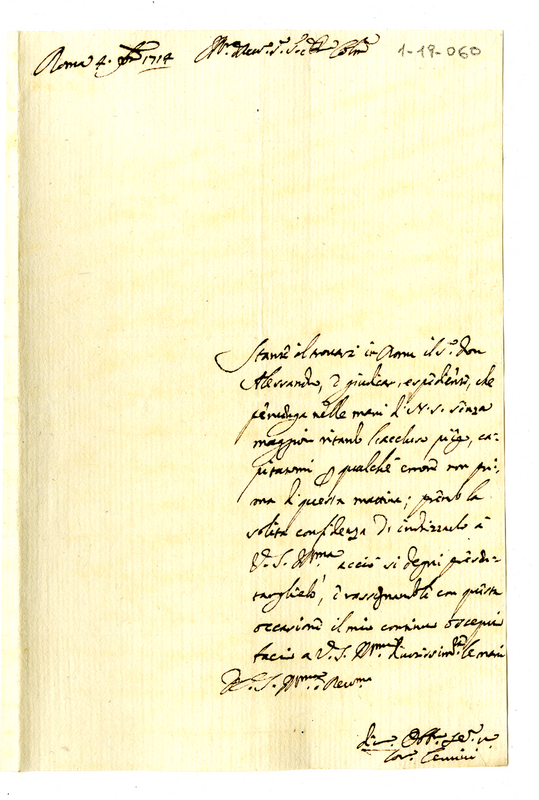 Roma 4. 1714
1-19-060
Stante il trovarsi in Roma il S.r Don
Alessandro, e giudicar espediente, che
pervenga nelle mani di N. S. senza
maggior ritardo l'accluso piego, ca-
pitatomi qualche errore non pri-
ma di questa mattina; prendo la
solita confidenza di indirizzarlo a
V. S. Ill.ma acciò si degni
e rassegnandole con questa
occasione il mio continuo ossequio
bacio a V. S. Ill.ma le mani
Di V. S. Ill.ma e Rev.ma